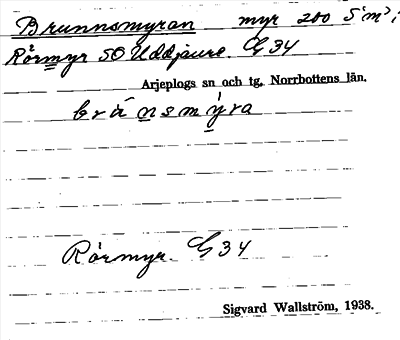 Brunnsmyran myr 200 S m³;
Rörmyr SO Uddjaure. G 34
Arjeplogs sn och tg, Norrbottens län.
brånsmýra
Rörmyr. G 34
Sigvard Wallström, 1938.